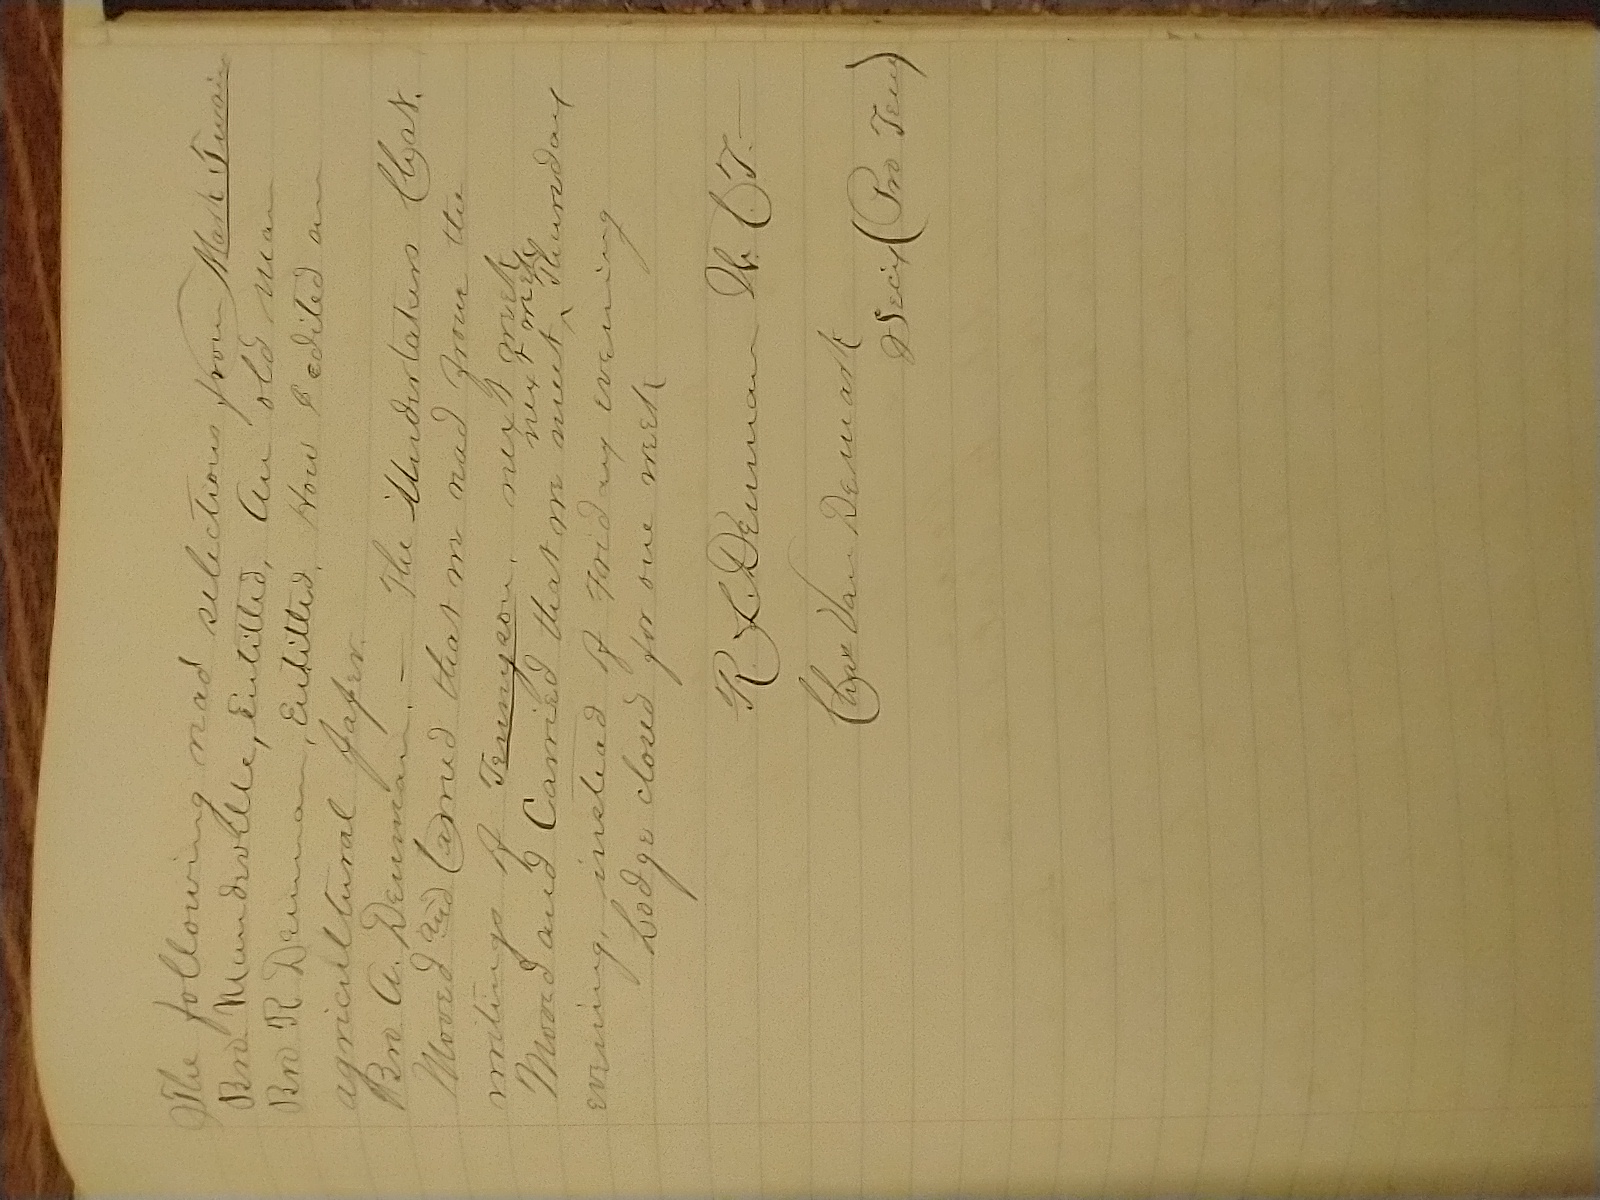 The following read selections from Mark Twain
Bro. Mandeville, Entitled, An old man
Bro R Denman, Entitled, How I edited an
agricultural paper.
Bro. A. Denman. — The Undertakers Chat.
Moved and Carried that we read from the
writings of Tennyson. next week
next week
Moved and Carried that we meet ^ Thursday
evening, instead of Friday evening
Lodge closed for one week
R. L. Denman W. C. T. —
Chas Van Demark
Secy (Pro Tem)